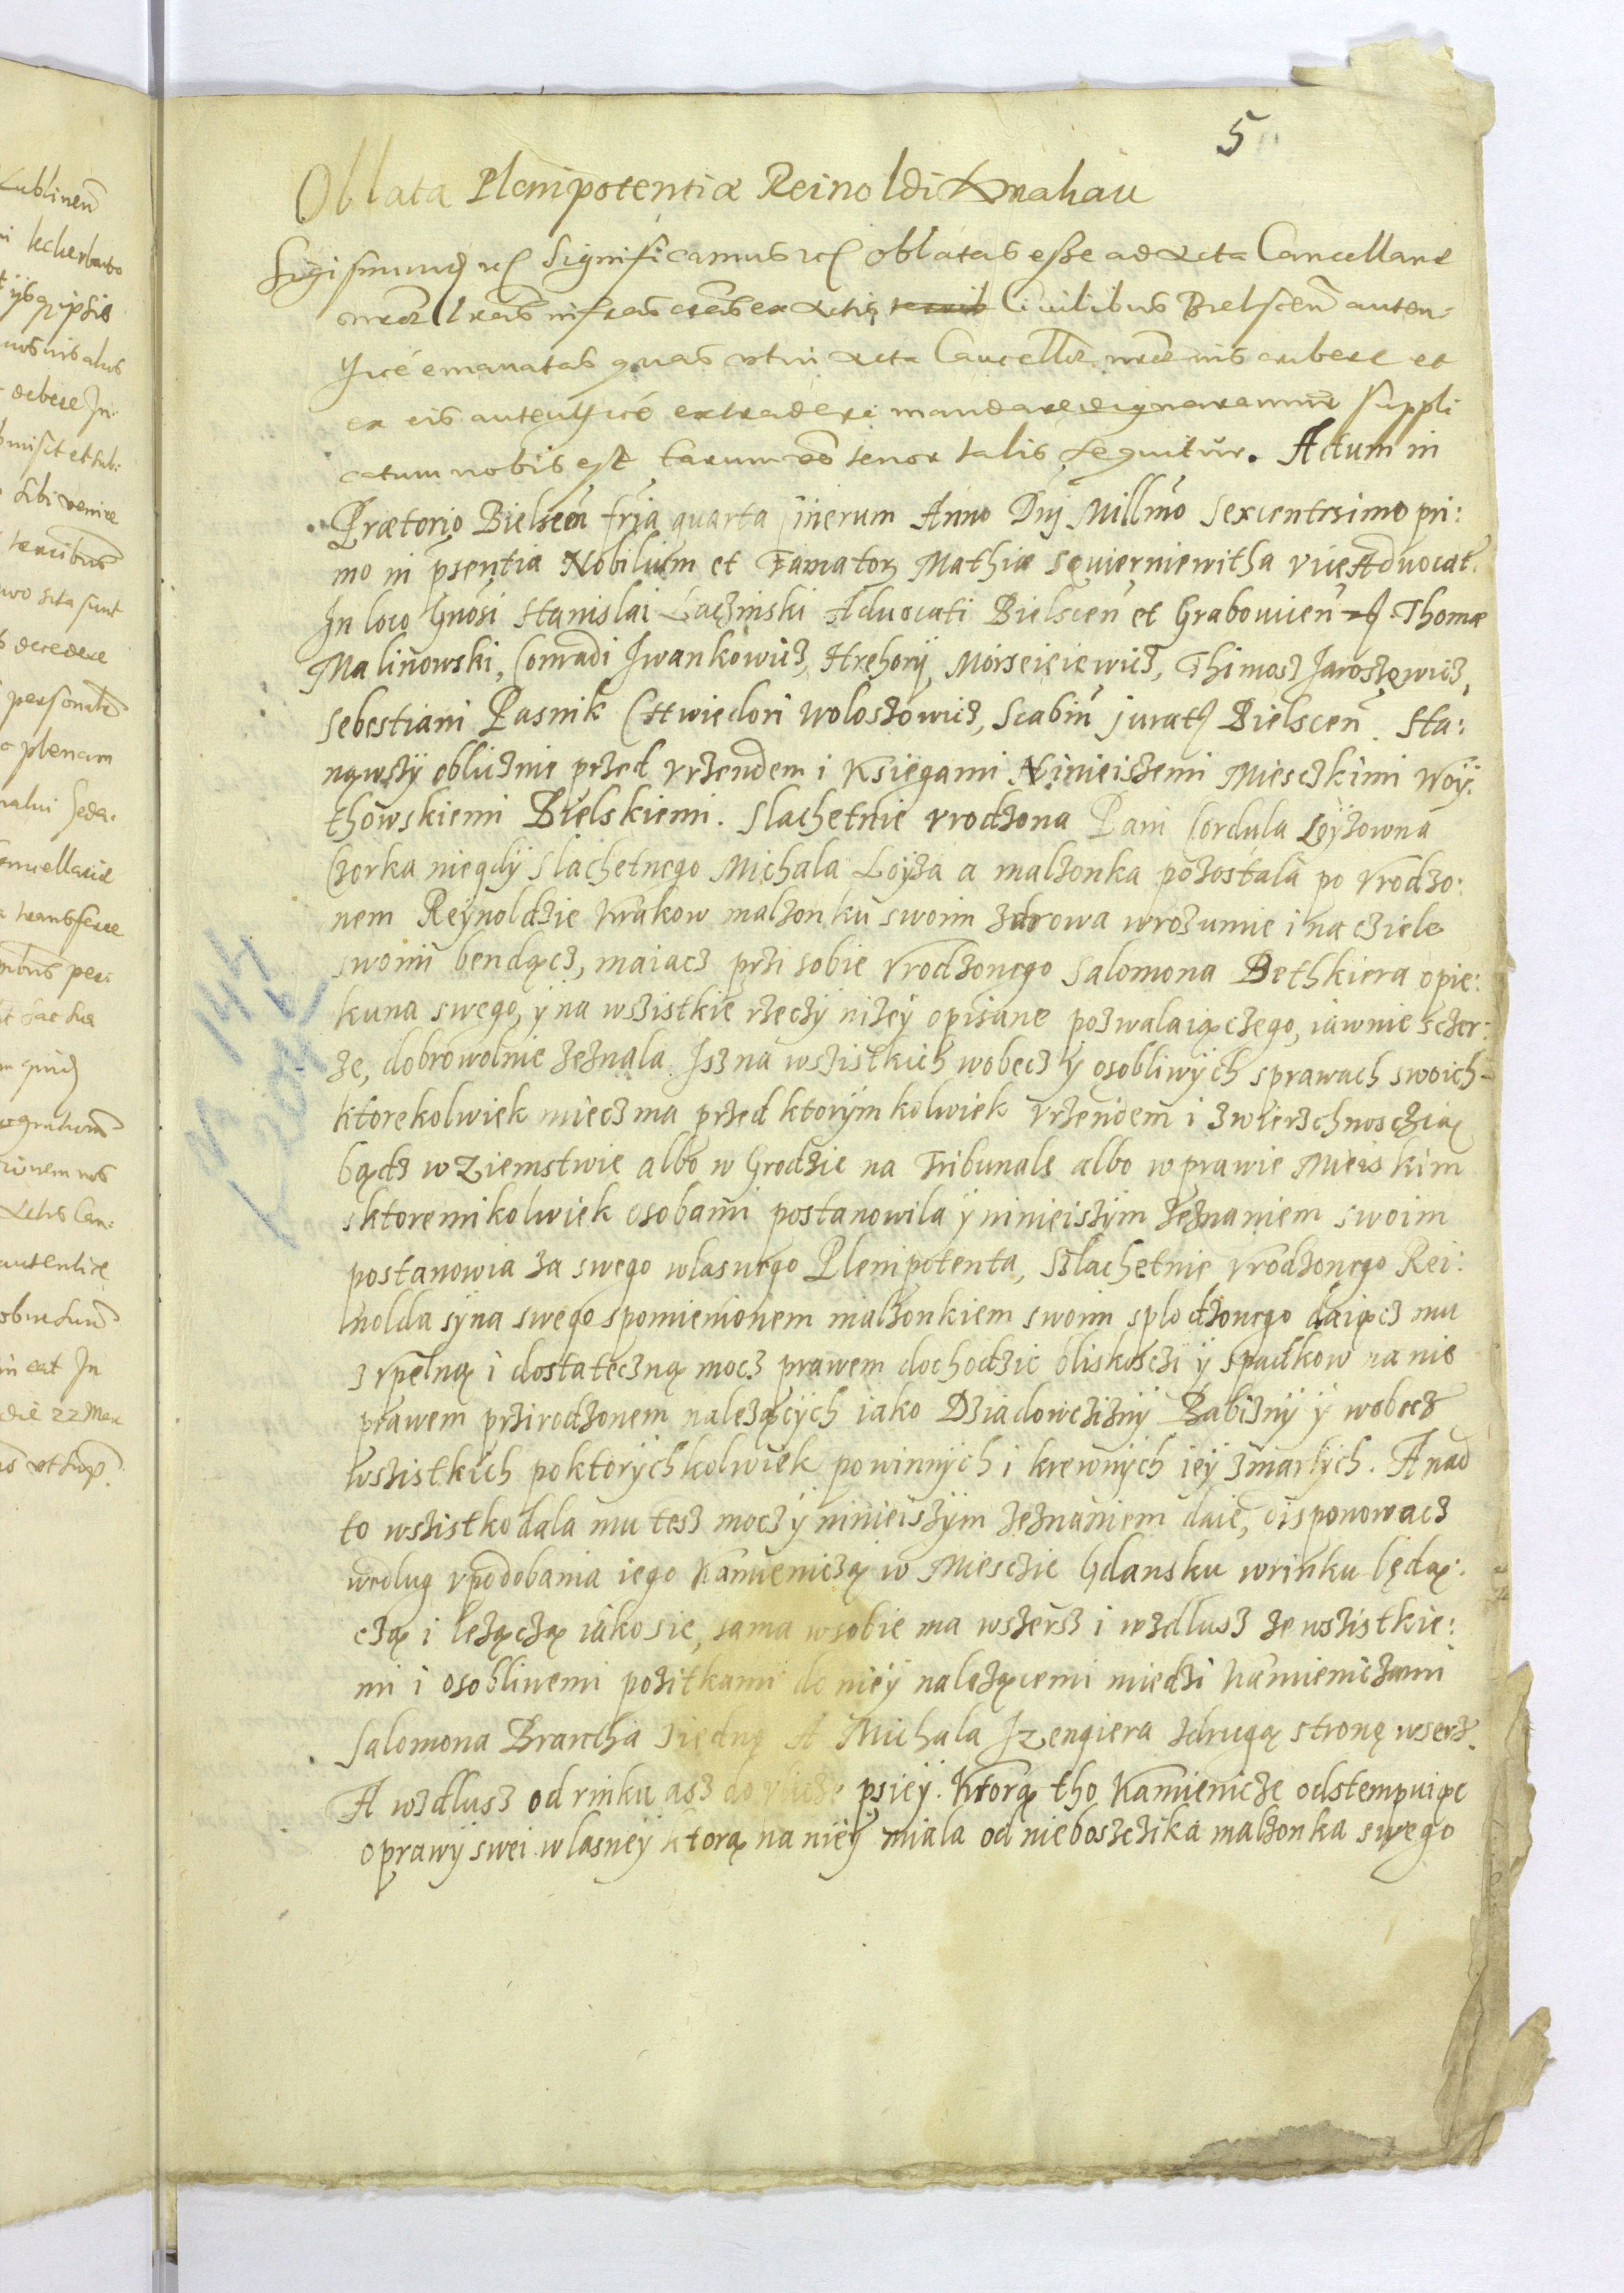 5
Oblata Plenipotentiæ Reinoldi Krakau
Sigismundꝯ etc Significamus etc oblatas esse ad Acta Cancellariæ
nræ Lras infrascrãs ex Actis Ciuilibus Bielscen̄ auten-
ticè emanatas quas ut in Acta Cancellæ nræ inscribere et
ex eis autenticè extradere mandare dignaremur suppli
catum nobis est earum vō tenor talis sequitur. Actum in
Prætorio Bielscen̄ fria quarta Cinerum Anno Dnj Millmo Sexcentesimo pri:
mo in p̄sentia Nobilium et Famator Mathiæ Squierniewitha viceAdvocat.
In loco Gnosi Stanislai Laczinski Advocati Bielscen̄ et Grabowien̄ Thomæ
Malinowski, Conradi Iwankowicz, Hrehory Morseieiewicz, Thimosz Jaroszewicz,
Sebestiani Pasnik Chwiedori Woloszowicz, Scabin̄ jurat Bielscen̄. Sta:
nąwszÿ obliznie przed vrzendem i Księgami Ninieiszemi Miesczkimi Woÿ:
thowskiemi Bielskiemi. Slachetnie vrodzona Pani Cordula Loÿzowna
Czorka niegdÿ Slachetnego Michala Loÿza a malzonka pozostala po vrodzo:
nem Reÿnoldzie Krakow malzonku swoim zdrowa wrozumie i na cziele
swoim bendącz, maiacz przi sobie vrodzonego Salomona Bethkiera opie:
kuna swego, ÿ na wszistkie rzeczÿ nizeÿ opisane pozwalaiączego, iawnie sczer:
ze, dobrowolnie zeznala. Isz na wszistkich wobecz ÿ osobliwÿch sprawach swoich
ktorekolwiek miecz ma przed ktorÿmkolwiek vrzendem i zwierzchnosczią
bądz w Ziemstwie albo w Grodzie na Tribunale albo w prawie Mieiskim
sktoremikolwiek osobami postanowila ÿ ninieiszÿm zeznaniem swoim
postanowia za swego wlasnego Plenipotenta, Szlachetnie vrodzonego Rei:
nolda sÿna swego spomienionem malzonkiem swoim splodzonego daiącz mu
zvpelną i dostateczną mocz prawem dochodzic bliskosczi ÿ spadkow na nie
prawem przirodzonem nalezącÿch iako Dziadowcziznÿ Babiznÿ ÿ wobecz
wszistkich poktorÿchkolwiek powinnÿch i krewnÿch ieÿ zmarlÿch. A nad
to wszistko dala mu tesz mocz ÿ ninieiszÿm zeznaniem daie, disponowacz
wedlug vpodobania iego Kamieniczą w Miesczie Gdansku wrinku będą:
czą i lezączą iako sie, sama wsobie ma wszersz i wzdlusz ze wszistkie:
mi i osobliwemi pozitkami do nieÿ nalezącemi miedzi Kamieniczami
Salomona Brantha ziedną A Michala Izengiera zdrugą stronę wserz.
A wzdlusz od rinku asz do vlicze psieÿ. Ktorą tho Kamienicze odstempuiąc
oprawÿ swei wlasneÿ ktorą na nieÿ miala od nieboszczika malzonka swego